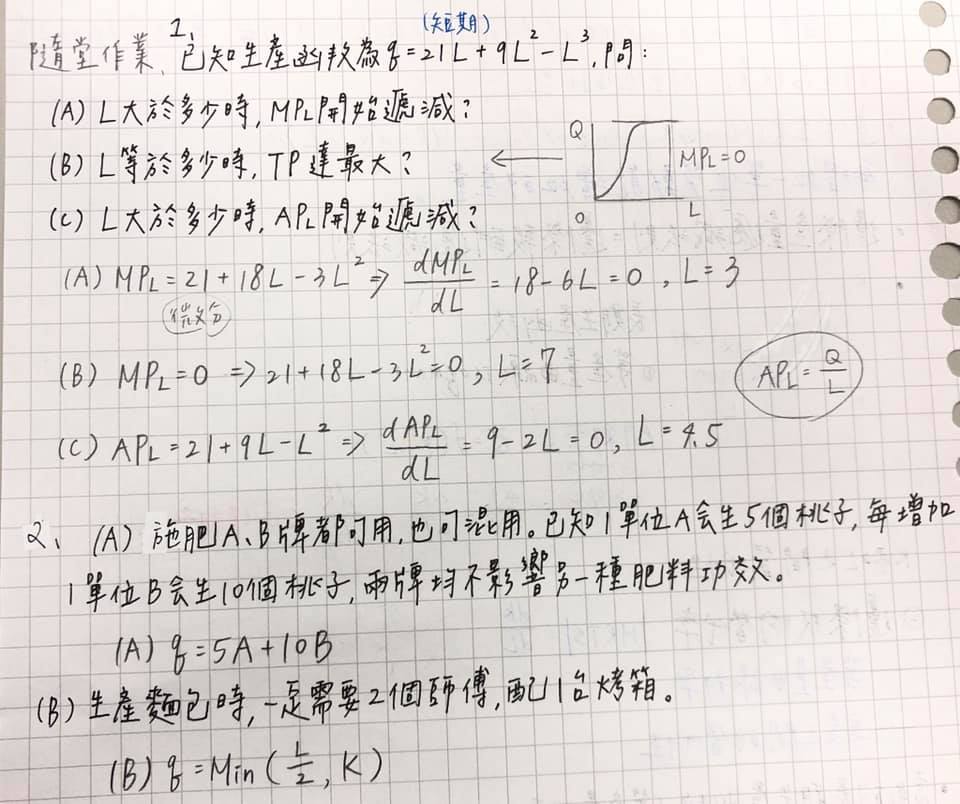 (短期)
隨堂作業、1、已知生產函數為q=21L+9L²-L³,問:
(A) L大於多少時,MPL開始遞減?
(B) L等於多少時,TP達最大? ←
Q
MPL=0
0 L
(C) L大於多少時,APL開始遞減?
(A) MPL=21+18L-3L² ⇒ dMPL/dL = 18-6L=0, L=3
(微分)
(B) MPL=0 ⇒ 21+18L-3L²=0, L=7
APL=Q/L
(C) APL=21+9L-L² ⇒ dAPL/dL = 9-2L=0, L=4.5
2、(A) 施肥A、B牌都可用,也可混用。已知1單位A会生5個桃子,每增加
1單位B会生10個桃子,兩牌均不影響另一種肥料功效。
(A) q=5A+10B
(B) 生產麵包時,一定需要2個師傅,配1台烤箱。
(B) q=Min(L/2, K)